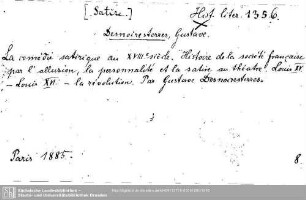 [Satire.] Hist. liter. 1356.
Desnoiresterres, Gustave.
La comédie satirique au XVIII siècle. Histoire de la société française
par l'allusion, la personnalité et la satire au théâtre. Louis XV.
– Louis XVI. – la révolution. Par Gustave Desnoiresterres.
Paris 1885. 8.